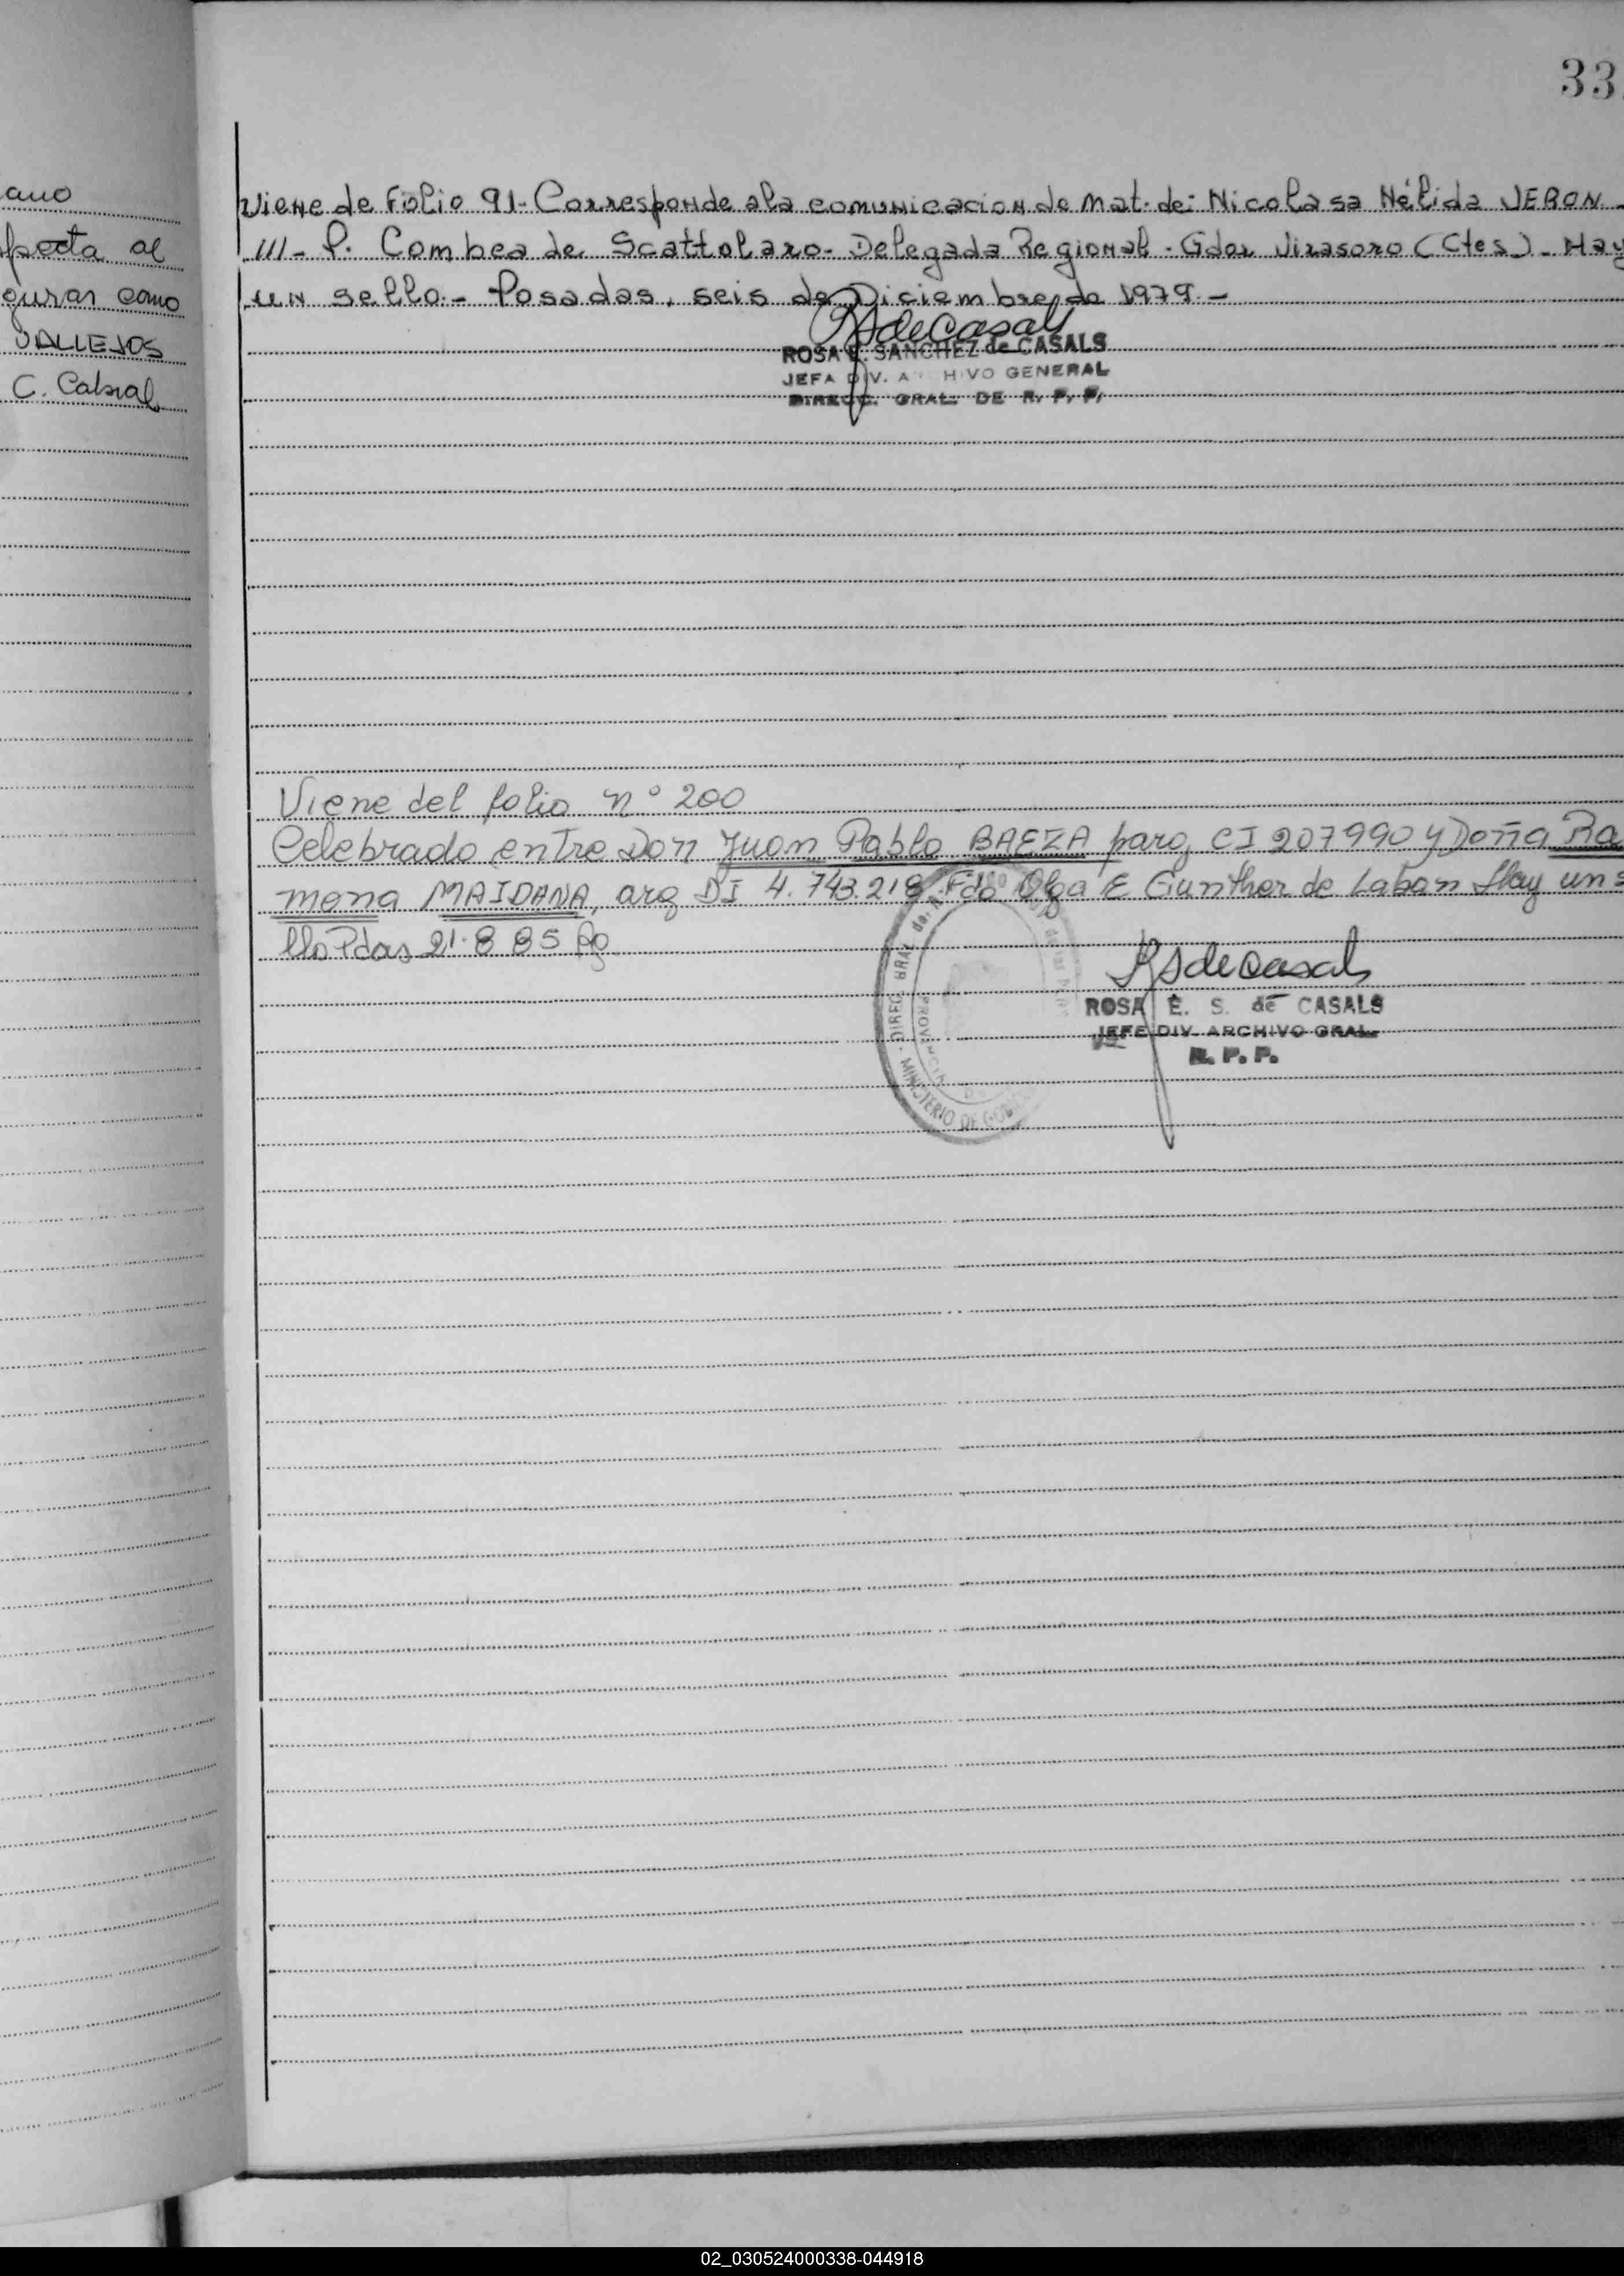 33
ano
pecta al
gurar como
VALLEJOS
C. Cabral
Viene de Folio 91- Corresponde a la comunicacion de mat. de: Nicolasa Nélida VERON -
///- P. Combea de Scattolaro- Delegada Regional - Gdor Virasoro (Ctes) - Hay
un sello.- Posadas, seis de Diciembre de 1979.-
RSdeCasals
ROSA E. SANCHEZ de CASALS
JEFA DIV. ARCHIVO GENERAL
DIRECC. GRAL. DE R. P. P.
Viene del folio n° 200
Celebrado entre Don Juan Pablo BAEZA parag CI 207990 y Doña Ra
mona MAIDANA, arg DI 4.743.218 Fdo Olga E Gunther de Laban Hay un s
llo Pdas 21.8 85
DIREC. GRAL. de
PROVINCIA
MINISTERIO DE GOB
RSdecasals
ROSA E. S. de CASALS
JEFE DIV. ARCHIVO GRAL.
R. P. P.
02_030524000338-044918